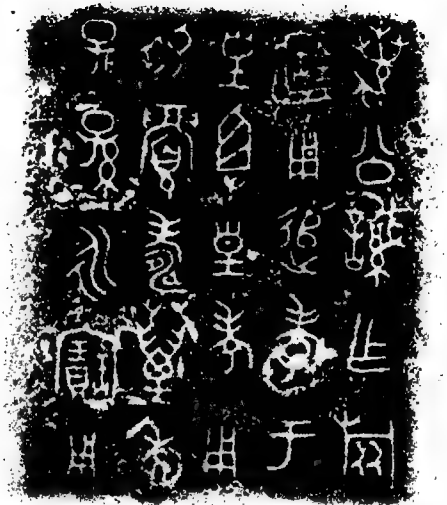 蠚公諴乍旅
簠用追孝于
皇且皇考用
易眉壽萬年
子孫永寶用